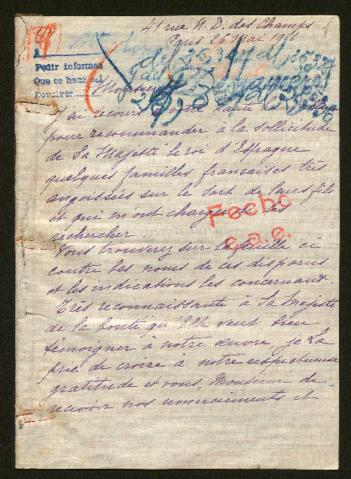 41 rue N. D. des Champs
Paris 26 Mai 1916
A
Pedir informes
Que ce haec sal
Devolver
Monsieur
J'ai recours à votre
pour recommander à la sollicitude
de Sa Majesté le roi d'Espagne
quelques familles françaises très
angoissées sur le sort de leurs fils
et qui m'ont chargée de les
rechercher
Fecho
e.a.e.
Vous trouverez sur la feuille ci
contre les noms de ces disparus
et les indications les concernant.
Très reconnaissante à Sa Majesté
de la bonté qu'Elle veut bien
témoigner à notre œuvre, je La
prie de croire à notre respectueuse
gratitude et vous, Monsieur de
recevoir nos remerciements et